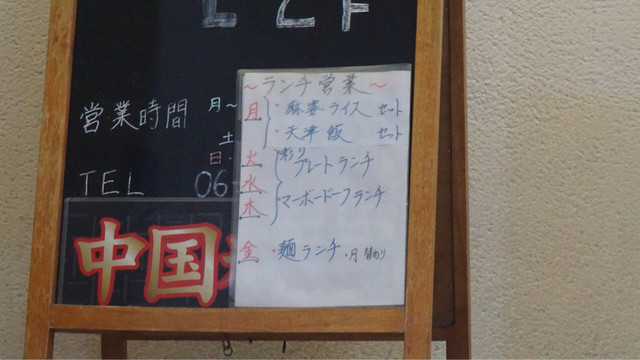 ～ランチ営業～
月 ・麻婆ライス セット
・天津飯 セット
火 彩り プレートランチ
水
木 ・マーボードーフランチ
金 ・麺ランチ ・月替わり
営業時間 月～
土
日・
TEL 06
中国